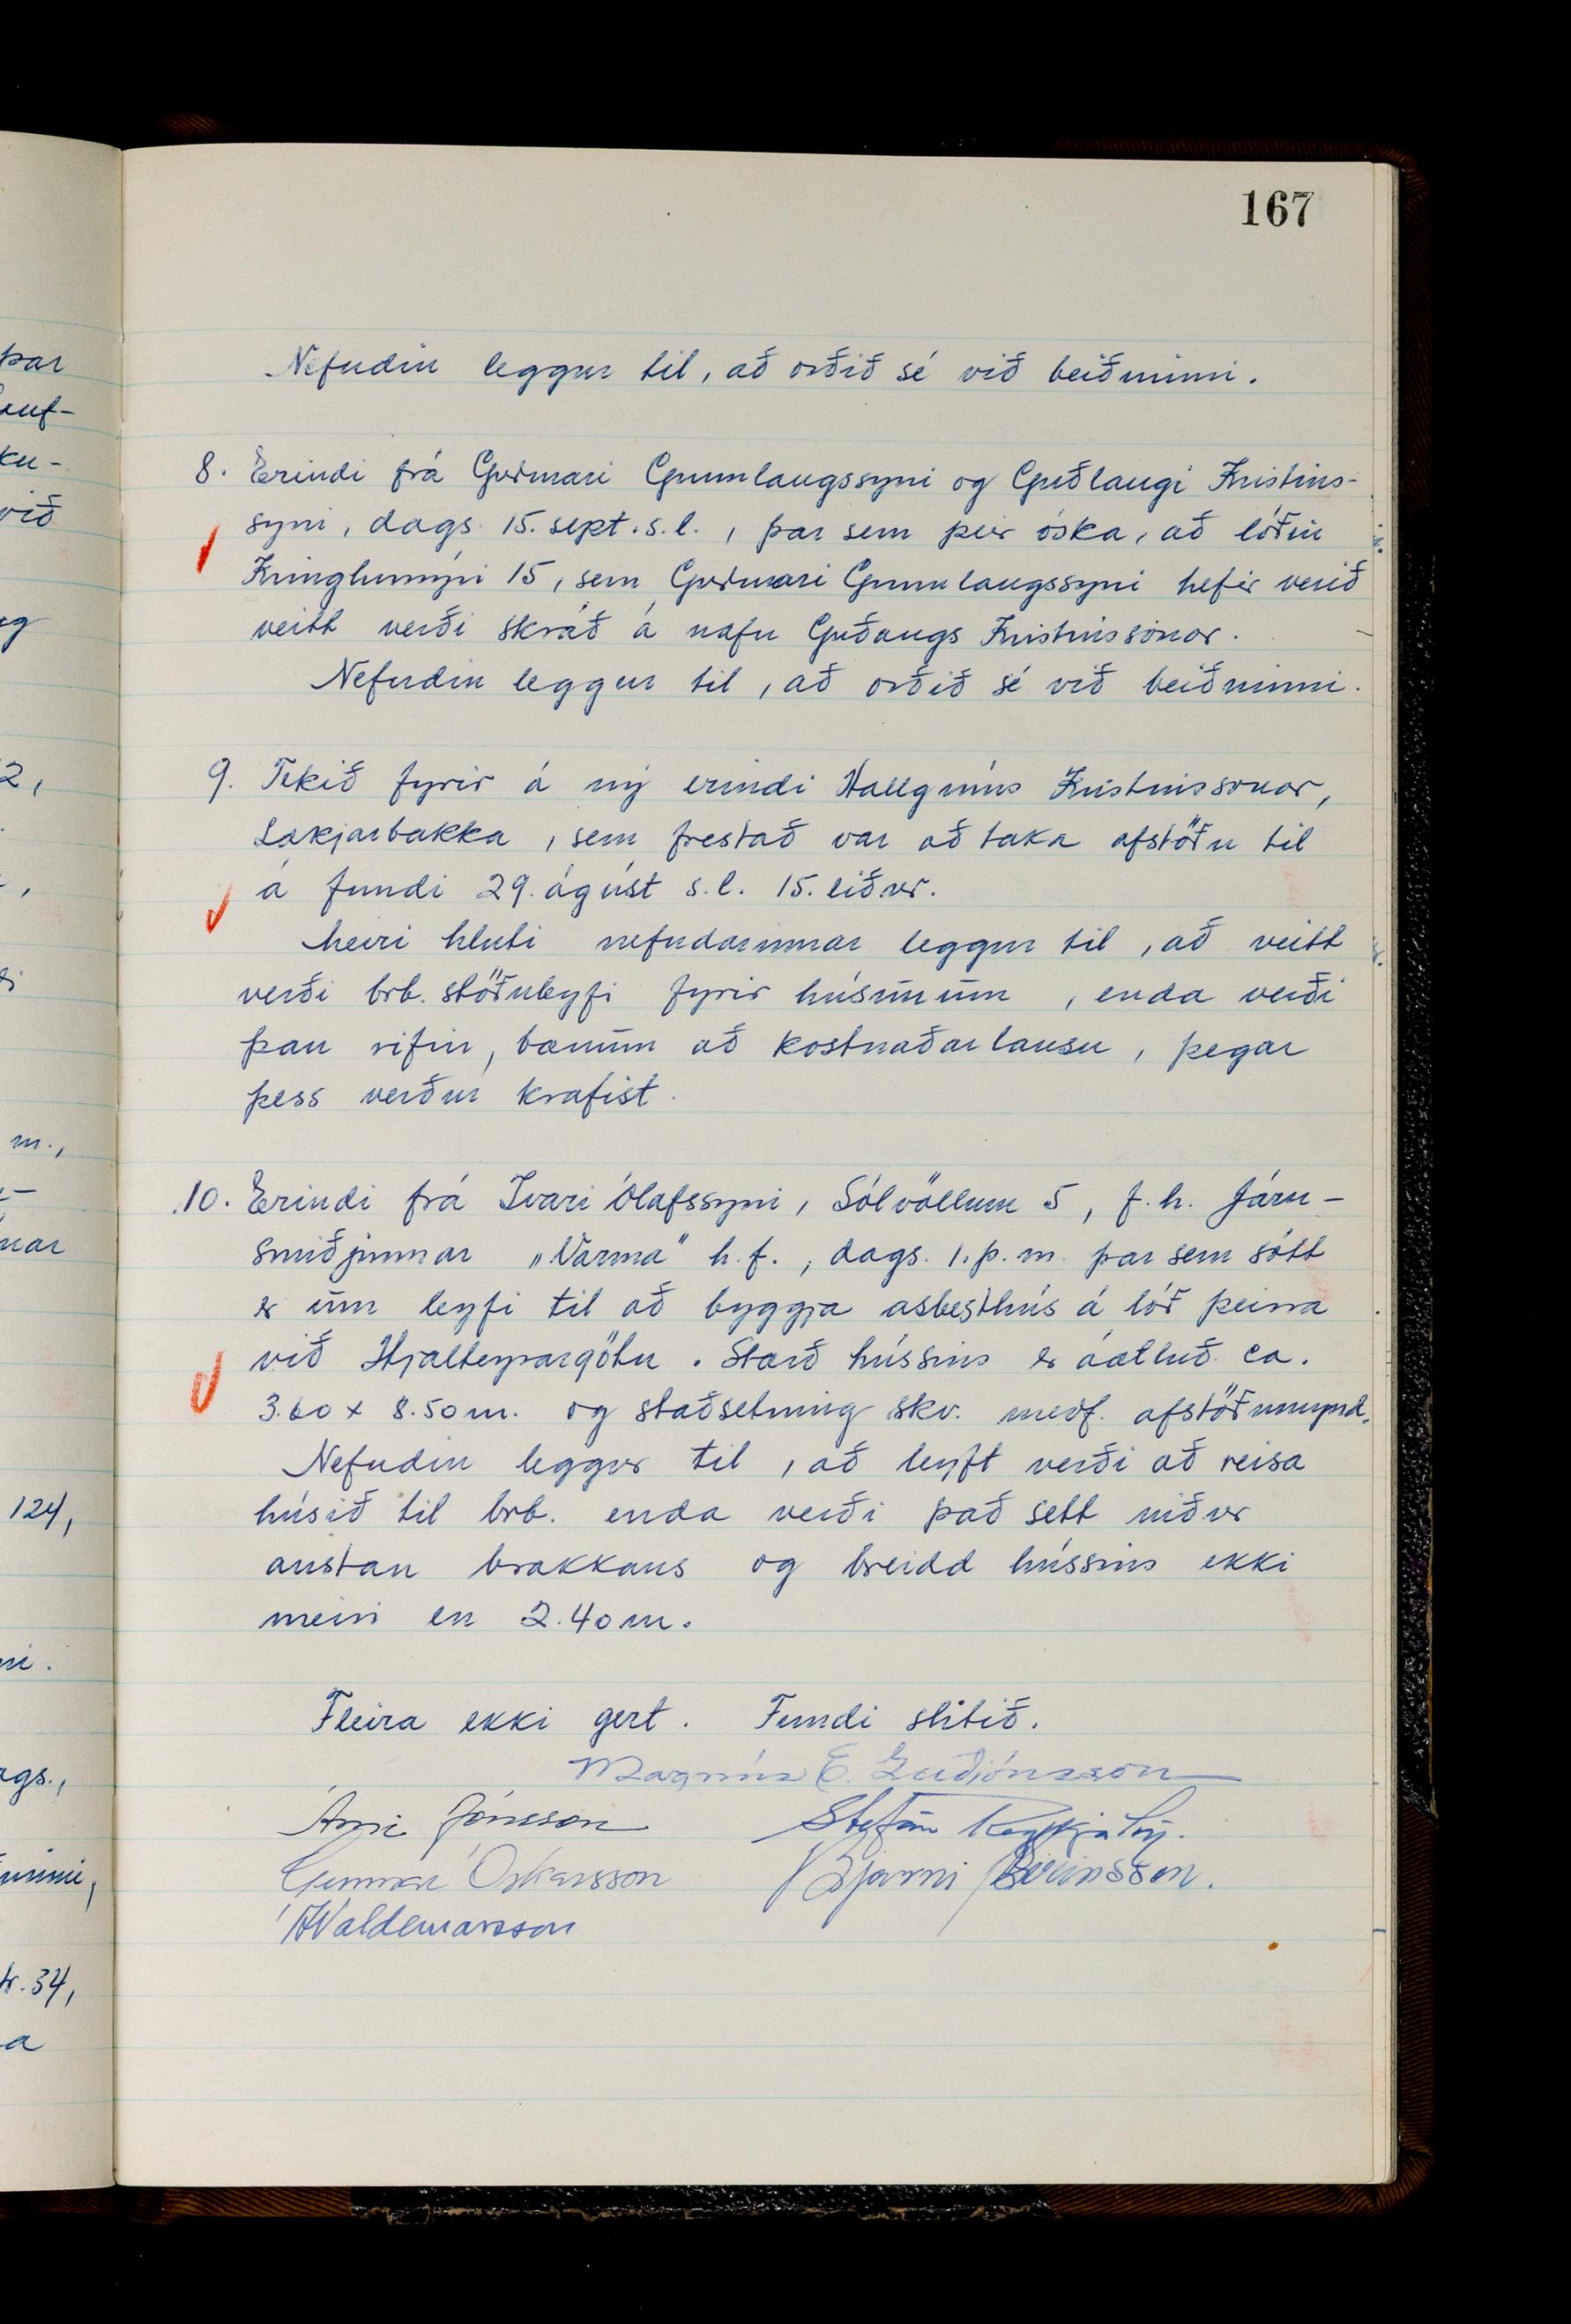 167
Nefndin leggur til, að orðið sé við beiðninni.
8. Erindi frá Geirmari Gunnlaugssyni og Guðlaugi Kristins-
syni, dags. 15. sept. s.l., þar sem þeir óska, að lóðin
Kringlumýri 15, sem Geirmari Gunnlaugssyni hefir verið
veitt verði skráð á nafn Guðaugs Kristinssonar.
Nefndin leggur til, að orðið sé við beiðninni.
9. Tekið fyrir á ný erindi Hallgríms Kristinssonar,
Lækjarbakka, sem frestað var að taka afstöðu til
á fundi 29. ágúst s.l. 15. liður.
Meiri hluti nefndarinnar leggur til, að veitt
verði brb. stöðuleyfi fyrir húsunum, enda verði
þau rifin, bænum að kostnaðarlausu, þegar
þess verður krafist.
10. Erindi frá Ívari Ólafssyni, Sólvöllum 5, f.h. Járn-
smiðjunnar „Varma" h.f., dags. 1. þ.m. þar sem sótt
er um leyfi til að byggja asbesthús á lóð þeirra
við Hjalteyrargötu. Stærð hússins er áætluð ca.
3.60 x 8.50 m. og staðsetning skv. meðf. afstöðumynd.
Nefndin leggur til, að leyft verði að reisa
húsið til brb. enda verði það sett niður
austan brakkans og breidd hússins ekki
meiri en 2.40 m.
Fleira ekki gert. Fundi slitið.
Magnús E. Guðjónsson
Árni Jónsson Stefán Reykjalín.
Gunnar Óskarsson Bjarni Sveinsson.
Waldemarsson
þar
við
og
m.,
124,
dags.,
34,